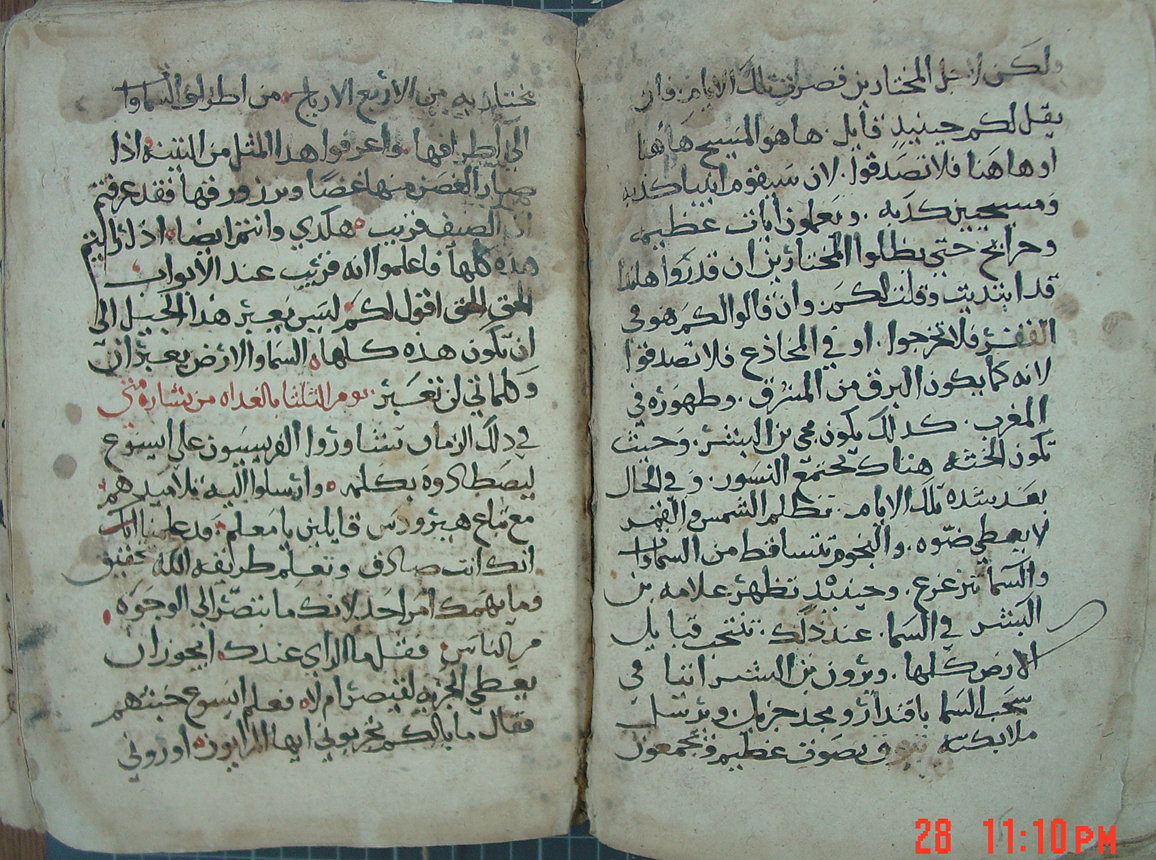 ولكن لاجل المختارين قصرت تلك الايام. فان
يقل لكم حينيدٍ قايل. ها هو المسيح هاهنا
او هاهنا فلا تصدقوا. لان سيقوم انبيا كذبه
ومسيحيين كذبه. ويعملون ايات عظيمه
وجرايح حتي يظلوا المختارين ان قدروا هاانا
قد ابتديت وقلت لكم. وان قالوا لكم هو في
القفر فلا تخرجوا. او في المخادع فلا تصدقوا
لانه كما يكون البرق من المشرق. وظهوره في
المغرب. كدلك يكون مجي بن البشر. وحيث
تكون الجثه هناك تجتمع النسور. وفي الحال
بعد شده تلك الايام. تظلم الشمس والقمر
لا يعطي ضوه. والنجوم تتساقط من السماوات
والسما تتزعزع. وحينيد تظهر علامه بن
البشر في السما. عند دلك. تنتحب قبايل
الارض كلها. ويرون بن البشر اتيا في
سحب السما باقتدار ومجد جزيل. ويرسل
ملايكته ببوق بصوت عظيم فيجمعون
مختاريه من الاربع الارياح. من اطراف السماوات
الي اطرافها. واعرفوا هذا المثل من التينه اذا
صار الغصن منها غضا وبرز ورقها فقد عرفتم
ان الصيف قريب. هكدي وانتم ايضا. اذا رايتم
هذه كلها فاعلموا انه قريب عند الابواب
الحق الحق اقول لكم ليس يعبر هذا الجيل الي
ان تكون هذه كلها. السما والارض يعبران
وكلماتي لن تعبر. يوم الثلثا بالغداه من بشاره متي
في دلك الزمان تشاوروا الفريسيون علي ايسوع
ليصطادوه بكلمه. وارسلوا اليه تلاميدهم
مع تباع هيرودس قايلين يا معلم. قد علمنا
انك انت صادق وتعلم طريقه الله بحقيق
وما يهمك امر احد لانك ما تبصر الي الوجوه
من الناس. فقل ما الراي عندك ايجوز ان
يعطي الجزيه لقيصر ام لا. فعلم ايسوع خبثهم
فقال ما بالكم تجربوني ايها المرايون. اوروني
28 11:10PM